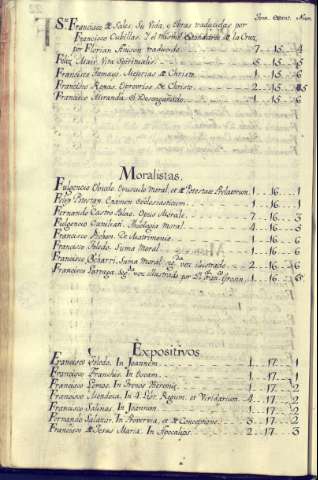 Tom. Estant. Num.
Sn. Francisco de Sales. Su Vida, y Obras traducidas por
Francisco Cubillas. Y el mismo Estandarte de la Cruz,
por Florian Anison traducido. 7 - 15. 4
Felix Vita Spirituales. 15. 5
Francisco Tamayo. de Christo. 1 - 15. 6
Francisco de Christo. 2 - 15.
Francisco Miranda. El Desengañado. 1 - 15. 6
Moralistas.
Fulgencio Opusculo Moral, et de Potestate Prelatorum. 1 - 16. 1
Felix Potestas. Examen Ecclesiasticum. 1 - 16. 1
Fernando Castro Palao. Opus Morale. 7 - 16. 3
Fulgencio Theologia Moral. 4 - 16. 5
Francisco De Matrimonio. 1 - 16. 6
Francisco Toledo. Suma Moral. 1 - 16. 6
Francisco Echarri. Suma Moral, sega. vez ilustrada. 2 - 16. 6
Francisco Larraga. sega. vez illustrado por 1 - 16.
Expositivos
Francisco Toledo. In Joannem. 1 - 17. 1
Francisco 1 - 17. 1
Francisco In 1 - 17. 2
Francisco Mendoza. In 4. Lib. Regum, et Viridarium. 4 - 17. 2
Francisco Salinas. In 1 - 17. 2
Fernando Salazar. In Proverbia, et de Conceptione. 3 - 17. 2
Francisco de Jesus Maria. In Apocalips. 2 - 17. 3